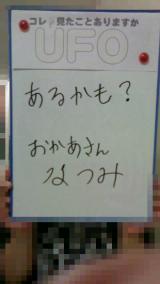 コレ見たことありますか
UFO
あるかも？
おかあさん
なつみ